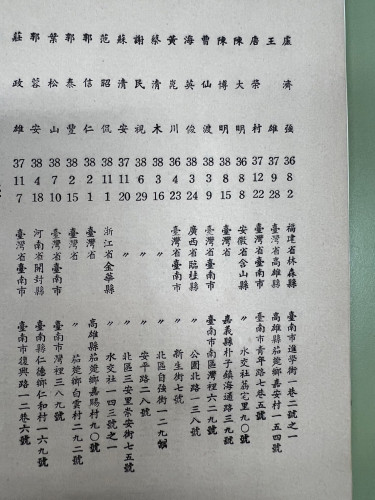 盧濟強 36 8 2 福建省林森縣 臺南市進學街一巷二號之一
王雄 37 9 28 臺灣省高雄縣 高雄縣茄萣鄉嘉安村一五四號
唐榮村 37 12 22 臺灣省臺南市 臺南市青年路七巷五號
陳大明 36 9 8 安徽省含山縣 〃 水交社荔宅里九〇號
陳博明 38 8 15 臺灣省 嘉義縣朴子鎮海通路三九號
曹仙渡 38 3 9 臺灣省臺南市 臺南市南區灣裡六二九號
海英俊 38 3 24 廣西省臨桂縣 〃 公園北路一三八號
黃崑川 36 4 23 臺灣省臺南市 〃 新生街七號
蔡清木 38 3 16 〃 〃 北區自強街一二九號
謝民祝 38 6 29 〃 〃 安平路二八號
蘇清安 37 11 20 〃 〃 北區三安里崇安街七五號
范昭侃 38 11 11 浙江省金華縣 〃 水交社一四三號之一
郭信仁 38 2 1 臺灣省 高雄縣茄萣鄉嘉賜村九〇號
郭泰豐 38 2 1 臺灣省 〃 茄萣鄉白雲村二九二號
葉松山 38 10 15 臺灣省臺南市 臺南市灣裡三八九號
郭蓉安 38 4 18 河南省開封縣 臺南縣仁德鄉仁和村一六九號
莊政雄 37 11 7 臺灣省臺南市 臺南市復興路一二巷六號